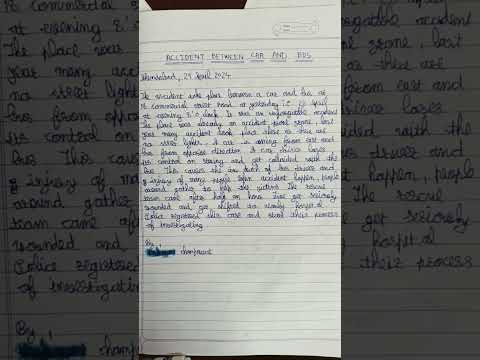 ACCIDENT BETWEEN CAR AND BUS
29 April 2024
The accident take place between a car and bus at
M commercial street road at yesterday i.e. 28 April
at evening 5'o clock. It was an unforgettable accident
The place was already an accident prone zone last
year many accident took place there as they are
no street lights. A car is coming from east and
bus from opposite direction
its control on and get collided with the
bus This causes the of bus driver and
injury of many people after accident happen, people
around gather to help the victims The rescue
team came after half an hour. get seriously
wounded and get shifted to nearby hospital
Police registered this case and start their process
of investigating
By,